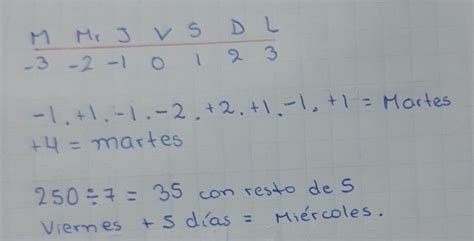 M Mr J V S D L
-3 -2 -1 0 1 2 3
-1, +1, -1, -2, +2, +1, -1, +1 = Martes
+4 = martes
250 ÷ 7 = 35 con resto de 5
Viernes + 5 días = Miércoles.